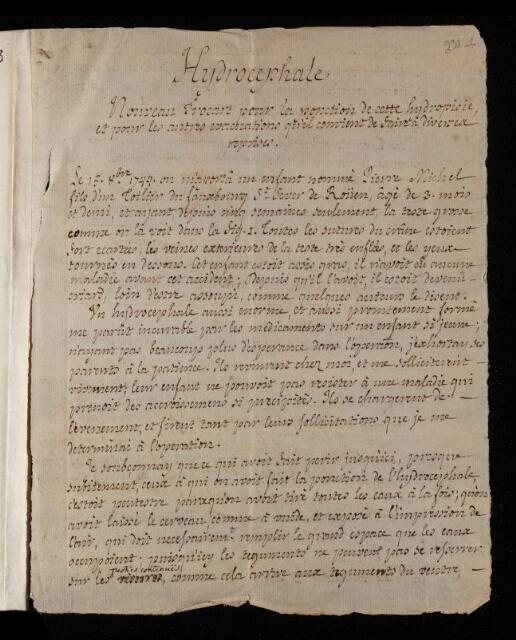 Hydrocephale
Nouveau Trocart pour la ponction de cette hydropisie,
et pour les autres evacuations qu'il convient de faire à diverses
reprises.
Le 15. 8bre 1744. on m'aporta un enfant nommé Pierre Michel
fils d'un Toilier du fauxbourg St. Sever de Roüen, agé de 3. mois
et demi, et ayant depuis six semaines seulement, la teste grosse
comme on la voit dans la Fig. 1. Toutes les sutures du crâne estoient
fort ecartées, les veines exterieures de la teste très enflées, et les yeux
tournés en dessous. Cet enfant estoit assés gras, il n'avoit eu aucune
maladie avant cet accident; depuis qu'il l'avoit, il estoit devenu
criard, loin d'estre assoupi, comme quelques auteurs le disent.
Un hydrocephale aussi enorme, et aussi promtement formé
me parut incurable par les medicaments sur un enfant si jeune;
n'ayant pas beaucoup plus d'esperance dans l'operation, j'exhortay ses
parents à la patience. Ils revinrent chez moi, et me solliciterent
vivement; leur enfant ne pouvoit pas resister à une maladie qui
prenoit des accroissemens si precipités. Ils se chargerent de
l'evenement, et firent tant par leurs sollicitations que je me
determinai à l'operation.
Je soubçonnay que ce qui avoit fait perir jusqu'ici, presque
subitement, ceux à qui on avoit fait la ponction de l'hydrocephale,
c'estoit peutestre parcequ'on avoit tiré toutes les eaux à la fois; qu'on
avoit laissé le cerveau, comme à vuide, et exposé à l'impression de
l'air, qui doit necessairemt. remplir le grand espace que les eaux
occupoient; puisqu'icy les teguments ne peuvent pas se resserrer
sur les parties contenues, comme cela arrive aux teguments du ventre,